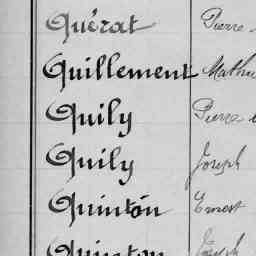 Quérat Pierre
Quillement Mathu
Quily Pierre
Quily Joseph
Quintón Ernest
Quinton Joseph